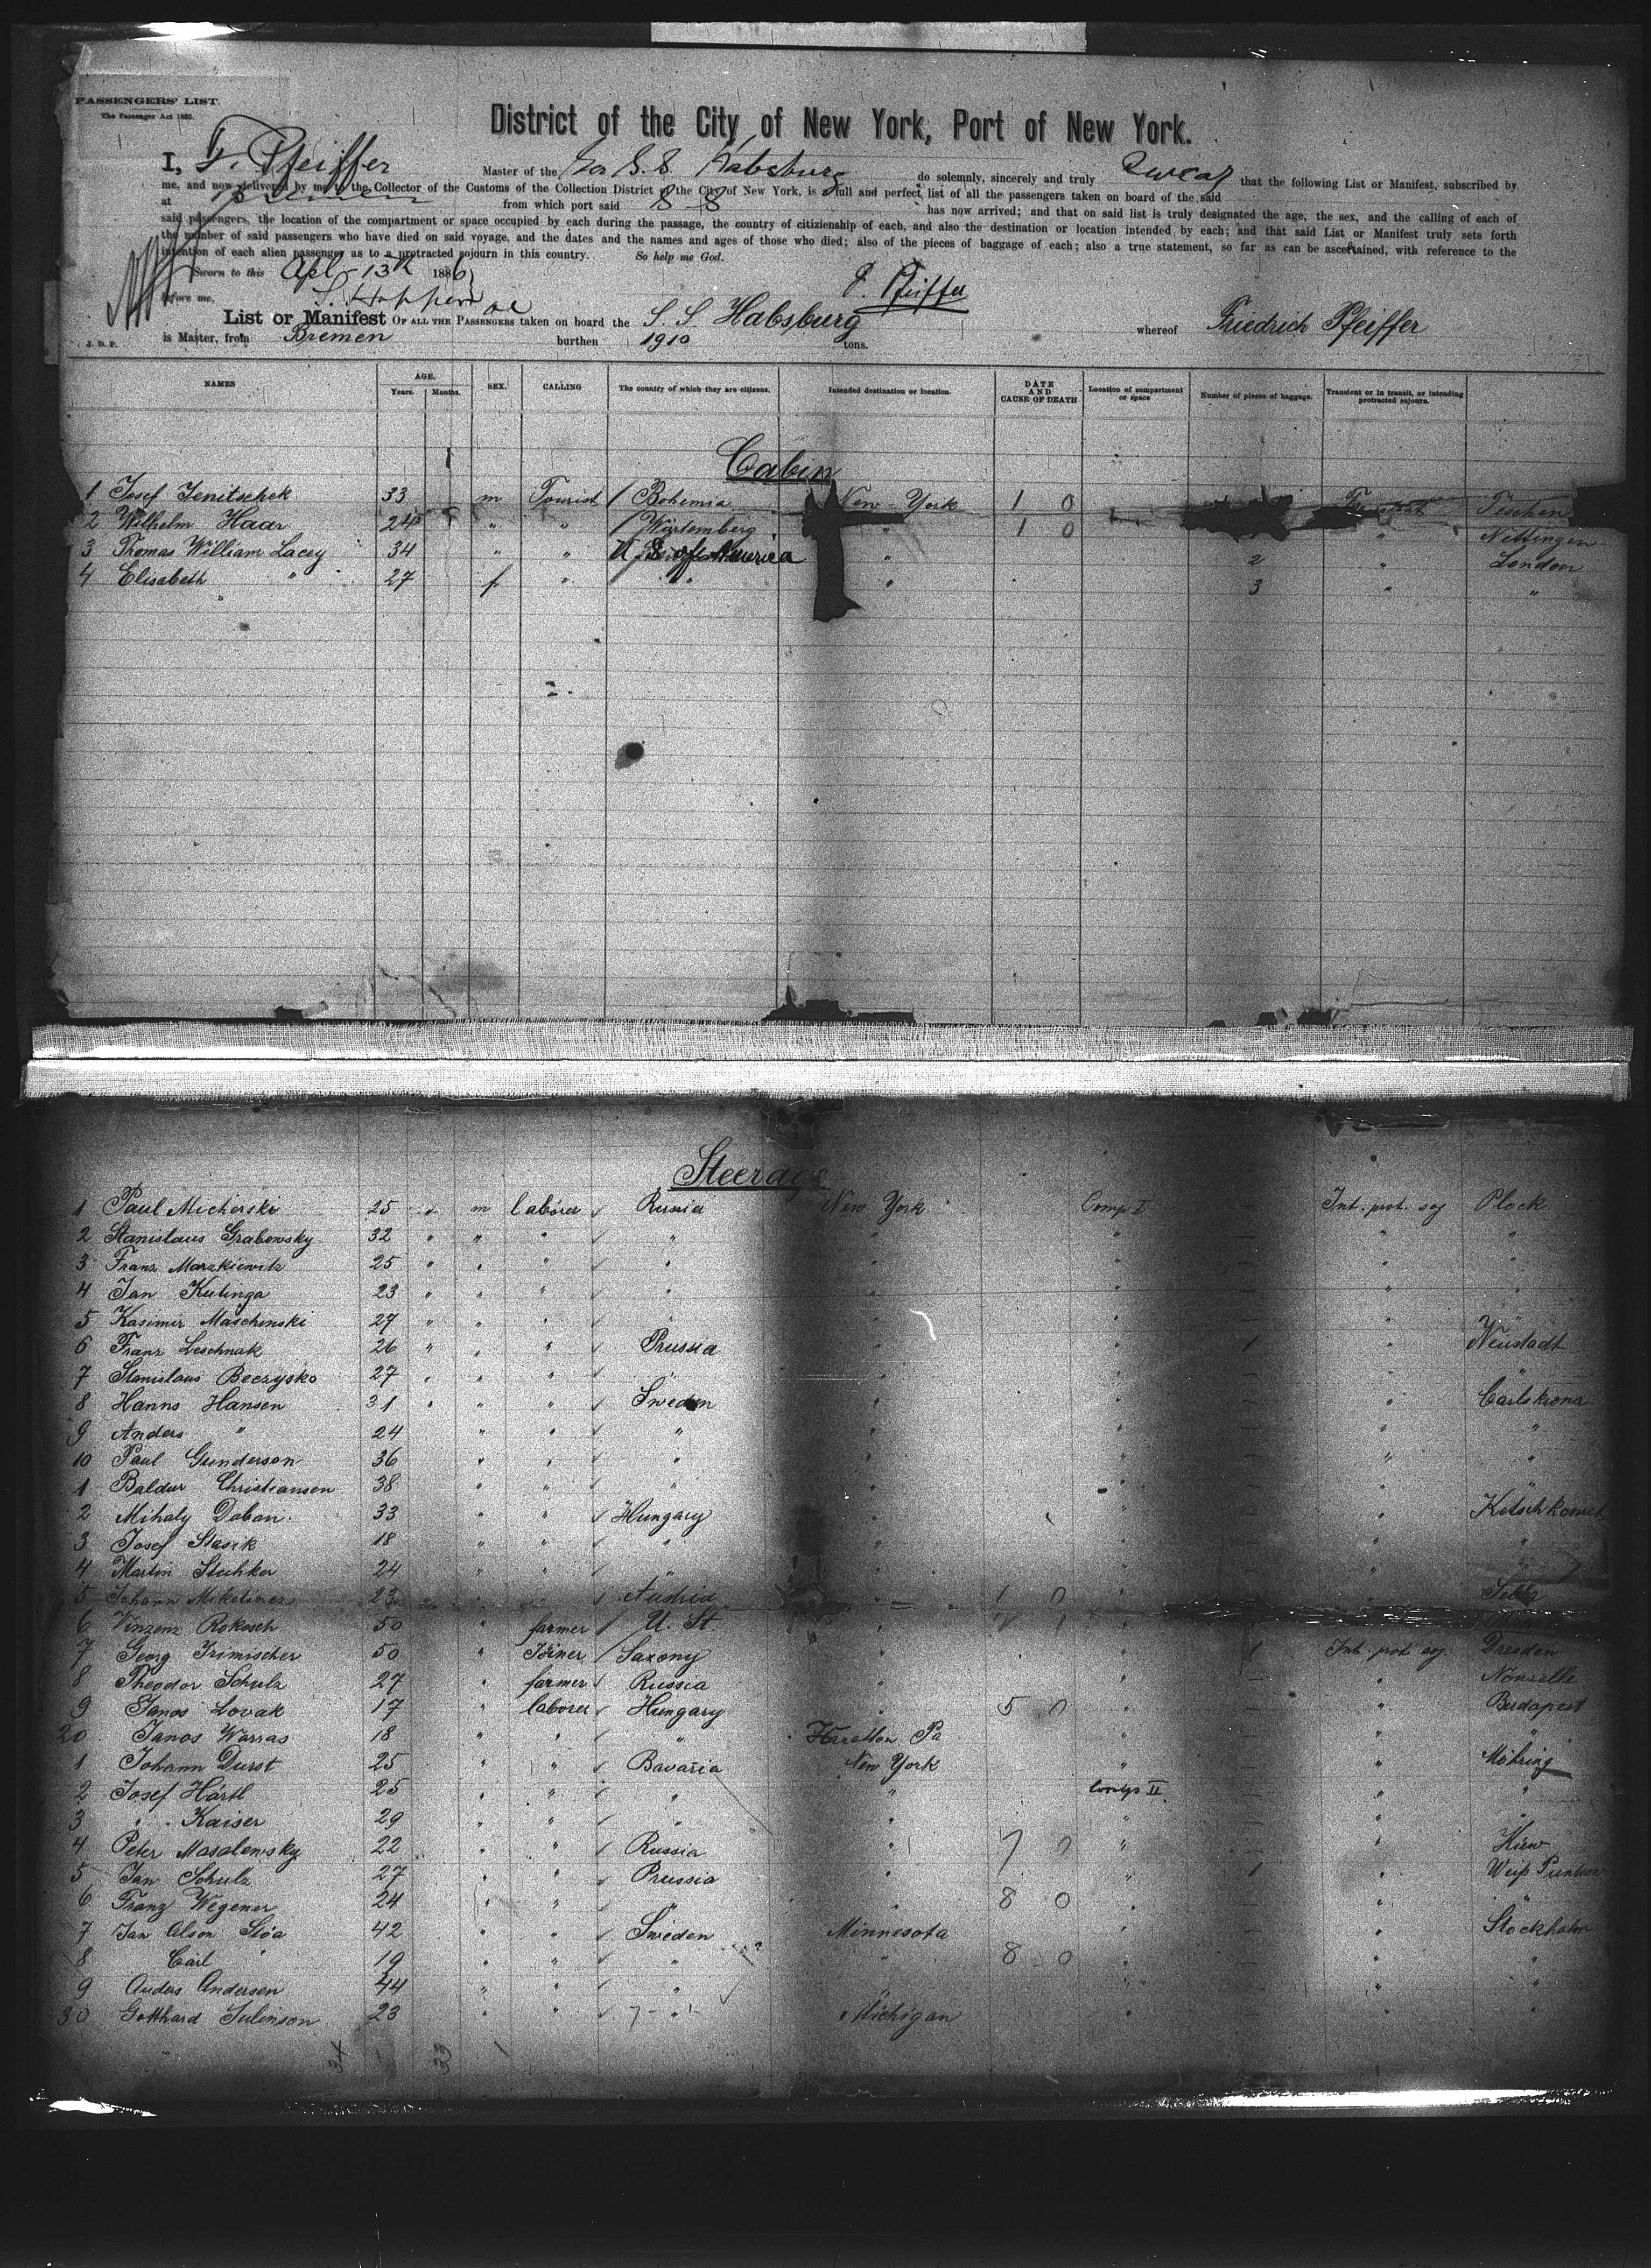 PASSENGERS' LIST.
The Passenger Act 1882.
District of the City of New York, Port of New York.
I, F. Pfeiffer Master of the Ger S. S. Habsburg do solemnly, sincerely and truly Swear that the following List or Manifest, subscribed by
me, and now delivered by me to the Collector of the Customs of the Collection District of the City of New York, is a full and perfect list of all the passengers taken on board of the said
at Bremen from which port said S S has now arrived; and that on said list is truly designated the age, the sex, and the calling of each of
said passengers, the location of the compartment or space occupied by each during the passage, the country of citizienship of each, and also the destination or location intended by each; and that said List or Manifest truly sets forth
the number of said passengers who have died on said voyage, and the dates and the names and ages of those who died; also of the pieces of baggage of each; also a true statement, so far as can be ascertained, with reference to the
intention of each alien passenger as to a protracted sojourn in this country. So help me God.
Sworn to this Apl 13th 1886
before me, F. Pfeiffer
List or Manifest OF ALL THE PASSENGERS taken on board the S. S. Habsburg whereof Friedrich Pfeiffer
J. D. P. is Master, from Bremen burthen 1910 tons.
NAMES AGE. Years. Months. SEX. CALLING The country of which they are citizens. Intended destination or location. DATE AND CAUSE OF DEATH Location of compartment or space Number of pieces of baggage. Transient or in transit, or intending protracted sojourn.
Cabin
1 Josef Jenitschek 33 m Tourist / Bohemia New York 1 0 Teschen
2 Wilhelm Haar 24 " " / Würtemberg " 1 0 " Nettingen
3 Thomas William Lacey 34 " " U. S. of America " 2 " London
4 Elisabeth " 27 f " " " 3 " "
Steerage
1 Paul Micherski 25 " m laborer √ Russia New York Comp I — Int. prot. soj Plock
2 Stanislaus Grabowsky 32 " " " √ " " " — " "
3 Franz Marzkiewitz 25 " " " √ " " " — " "
4 Jan Kulinga 23 " " " √ " " " — " "
5 Kasimir Maschinski 27 " " " √ " " " — " "
6 Franz Leschnak 26 " " " √ Prussia " " 1 " Neustadt
7 Stanislaus Beczysko 27 " " " √ " " " — " "
8 Hanns Hansen 31 " " " √ Sweden " " — " Carlskrona
9 Anders " 24 " " √ " " " — " "
10 Paul Gunderson 36 " " √ " " " — " "
1 Baldur Christianson 38 " " √ " " " — " "
2 Mihaly Doban 33 " " √ Hungary " " — " Ketschkomet
3 Josef Stasik 18 " " √ " " " — " "
4 Martin Stuhker 24 " " √ " " " — " "
5 Johann 23 " √ Austria " 1 0 "
6 Vinzenz Rokosch 50 " farmer / U. St. "
7 Georg Irimischer 50 " Joiner / Saxony " " 1 Int. prot soj Dresden
8 Theodor Schulz 27 " farmer √ Russia " " — "
9 Janos Lovak 17 " laborer √ Hungary " 5 0 " — " Budapest
20 Janos Warras 18 " " √ " Hazelton Pa " — " "
1 Johann Durst 25 " " √ Bavaria New York " — " Möhring
2 Josef Härtl 25 " " √ " " Comp II — " "
3 " Kaiser 29 " " √ " " " — " "
4 Peter Masalewsky 22 " " √ Russia " 7 0 " — " Kiew
5 Jan Schulz 27 " " √ Prussia " " 1 "
6 Franz Wegener 24 " " √ " " 8 0 " — " "
7 Jan Olson Stoa 42 " " √ Sweden Minnesota " — " Stockholm
8 Carl " 19 " " √ " " 8 0 " — " "
9 Anders Andersen 44 " " √ " " " — " "
30 Gotthard Julinson 23 " " √ " Michigan " — " "
34 33